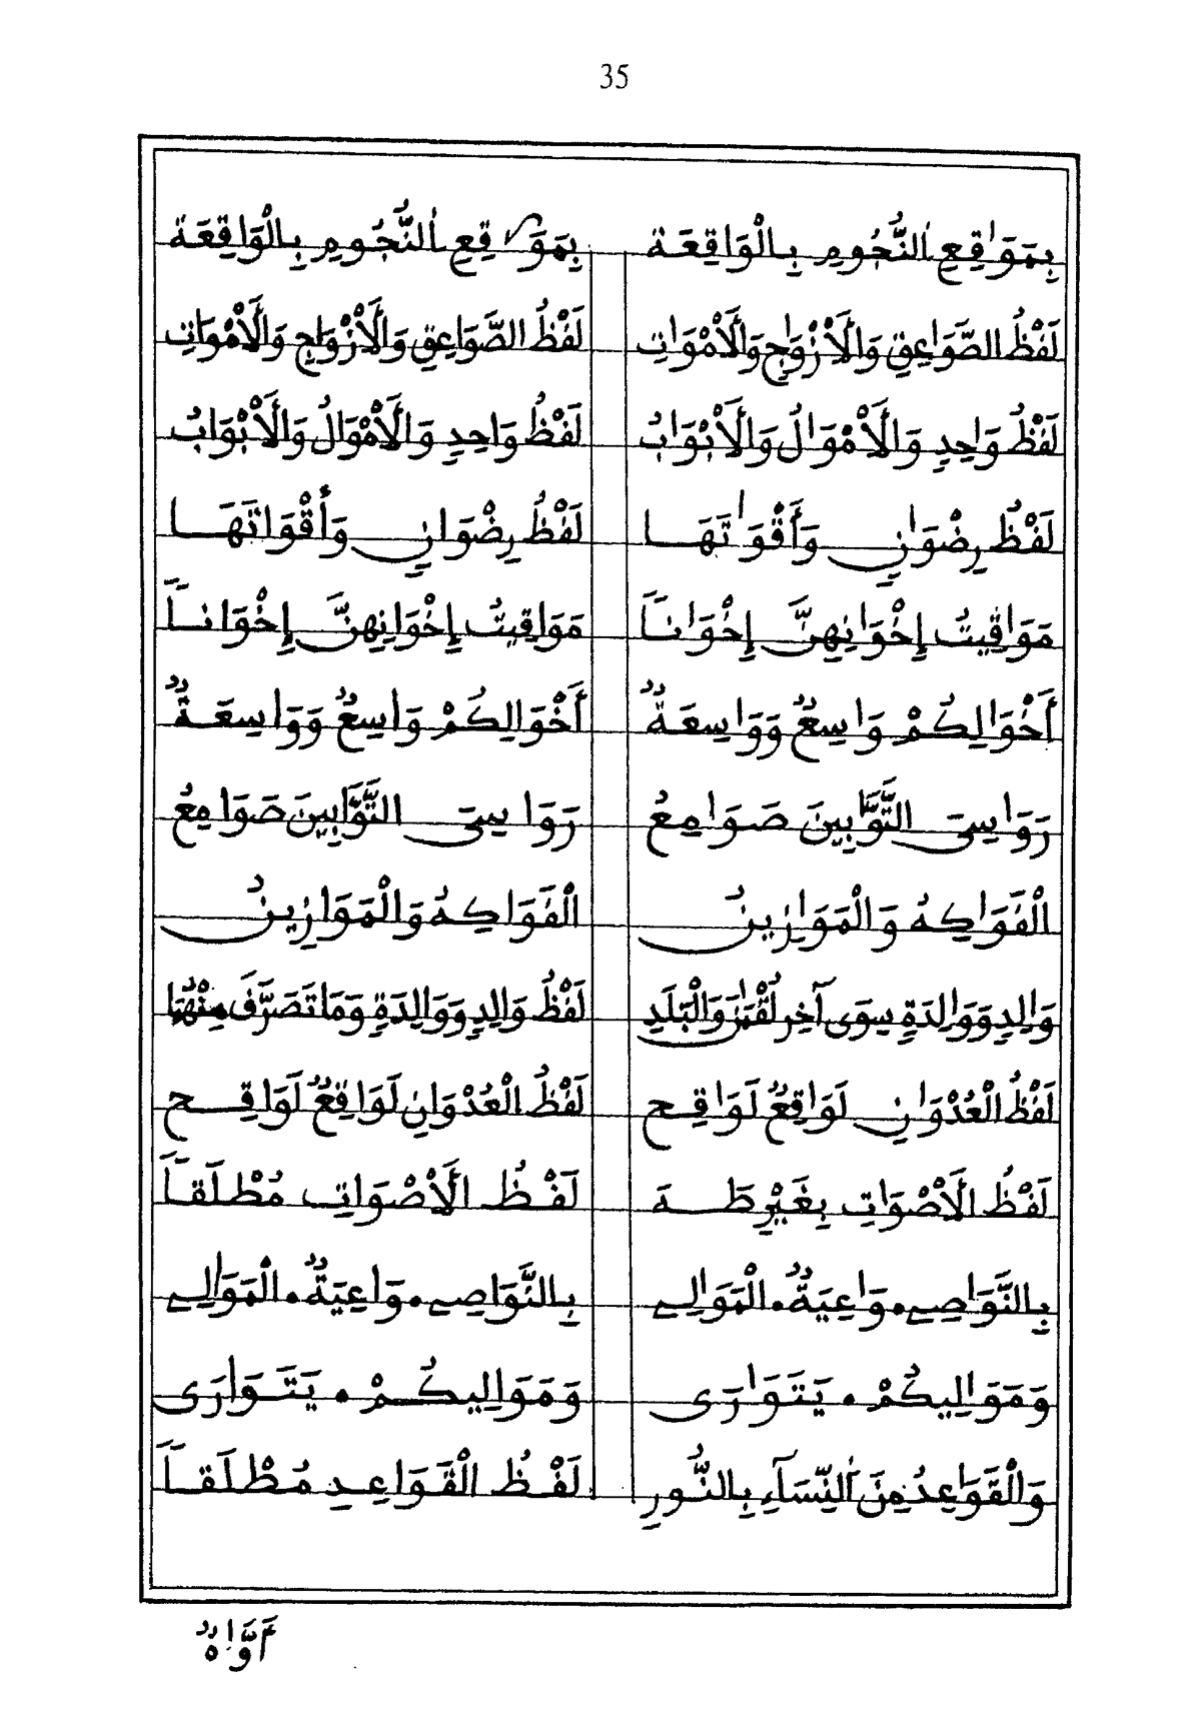 35
بِمَوَٰقِعِ اُلنُّجُومِ بِالْوَاقِعَة بِمَوَٰقِعِ اُلنُّجُومِ بِالْوَاقِعَة
لَفْظُ الصَّوَٰعِقِ وَالَْأَزْوَٰجِ وَالَْأَمْوَٰتِ لَفْظُ الصَّوَاعِقِ وَالَْأَزْوَاجِ وَالَْأَمْوَاتِ
لَفْظُ وَٰحِدٍ وَالَْأَمْوَٰلُ وَالَْأَبْوَٰبُ لَفْظُ وَاحِدٍ وَالَْأَمْوَالُ وَالَْأَبْوَابُ
لَفْظُ رِضْوَٰنٍ وَأَقْوَٰتَهَا لَفْظُ رِضْوَانٍ وَأَقْوَاتَهَا
مَوَٰقِيتُ إِخْوَٰنِهِنَّ إِخْوَٰناً مَوَاقِيتُ إِخْوَانِهِنَّ إِخْوَاناً
أَخْوَٰلِكُمْ وَٰسِعٌ وَوَٰسِعَةٌ أَخْوَالِكُمْ وَاسِعٌ وَوَاسِعَةٌ
رَوَٰسِىَ التَّوَّٰبِينَ صَوَٰمِعُ رَوَاسِىَ التَّوَّابِينَ صَوَامِعُ
الْفَوَٰكِهُ وَالْمَوَٰزِينُ الْفَوَاكِهُ وَالْمَوَازِينُ
وَٰلِدٍ وَوَٰلِدَةٍ سِوَى آخِرِ لُقْمَٰنَ وَالْبَلَدِ لَفْظُ وَالِدٍ وَوَالِدَةٍ وَمَا تَصَرَّفَ مِنْهُمَا
لَفْظُ الْعُدْوَٰنِ لَوَٰقِعٌ لَوَٰقِح لَفْظُ الْعُدْوَانِ لَوَاقِعٌ لَوَاقِح
لَفْظُ الَْأَصْوَٰتِ بِغَيْرِ طَهَ لَفْظُ الَْأَصْوَاتِ مُطْلَقاً
بِالنَّوَٰصِے. وَٰعِيَةٌ. الْمَوَٰلِے بِالنَّوَاصِے. وَاعِيَةٌ. الْمَوَالِے
وَمَوَٰلِيكُمْ. يَتَوَٰرَى وَمَوَالِيكُمْ. يَتَوَارَى
وَالْقَوَٰعِدُ مِنَ اَلنِّسَآءِ بِالنُّورِ لَفْظُ الْقَوَاعِدِ مُطْلَقاً
أَوَّٰهٌ